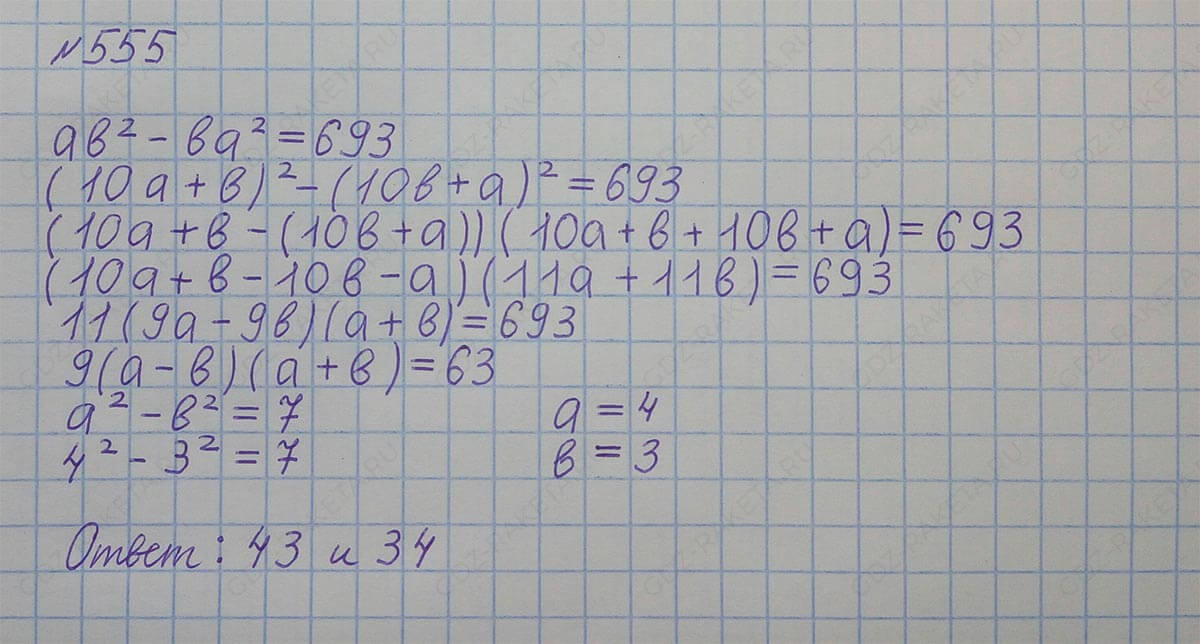 №555
ав² - ва² = 693
(10а + в)² - (10в + а)² = 693
(10а + в - (10в + а)) (10а + в + 10в + а) = 693
(10а + в - 10в - а) (11а + 11в) = 693
11 (9а - 9в) (а + в) = 693
9(а - в) (а + в) = 63
а² - в² = 7 а = 4
4² - 3² = 7 в = 3
Ответ: 43 и 34